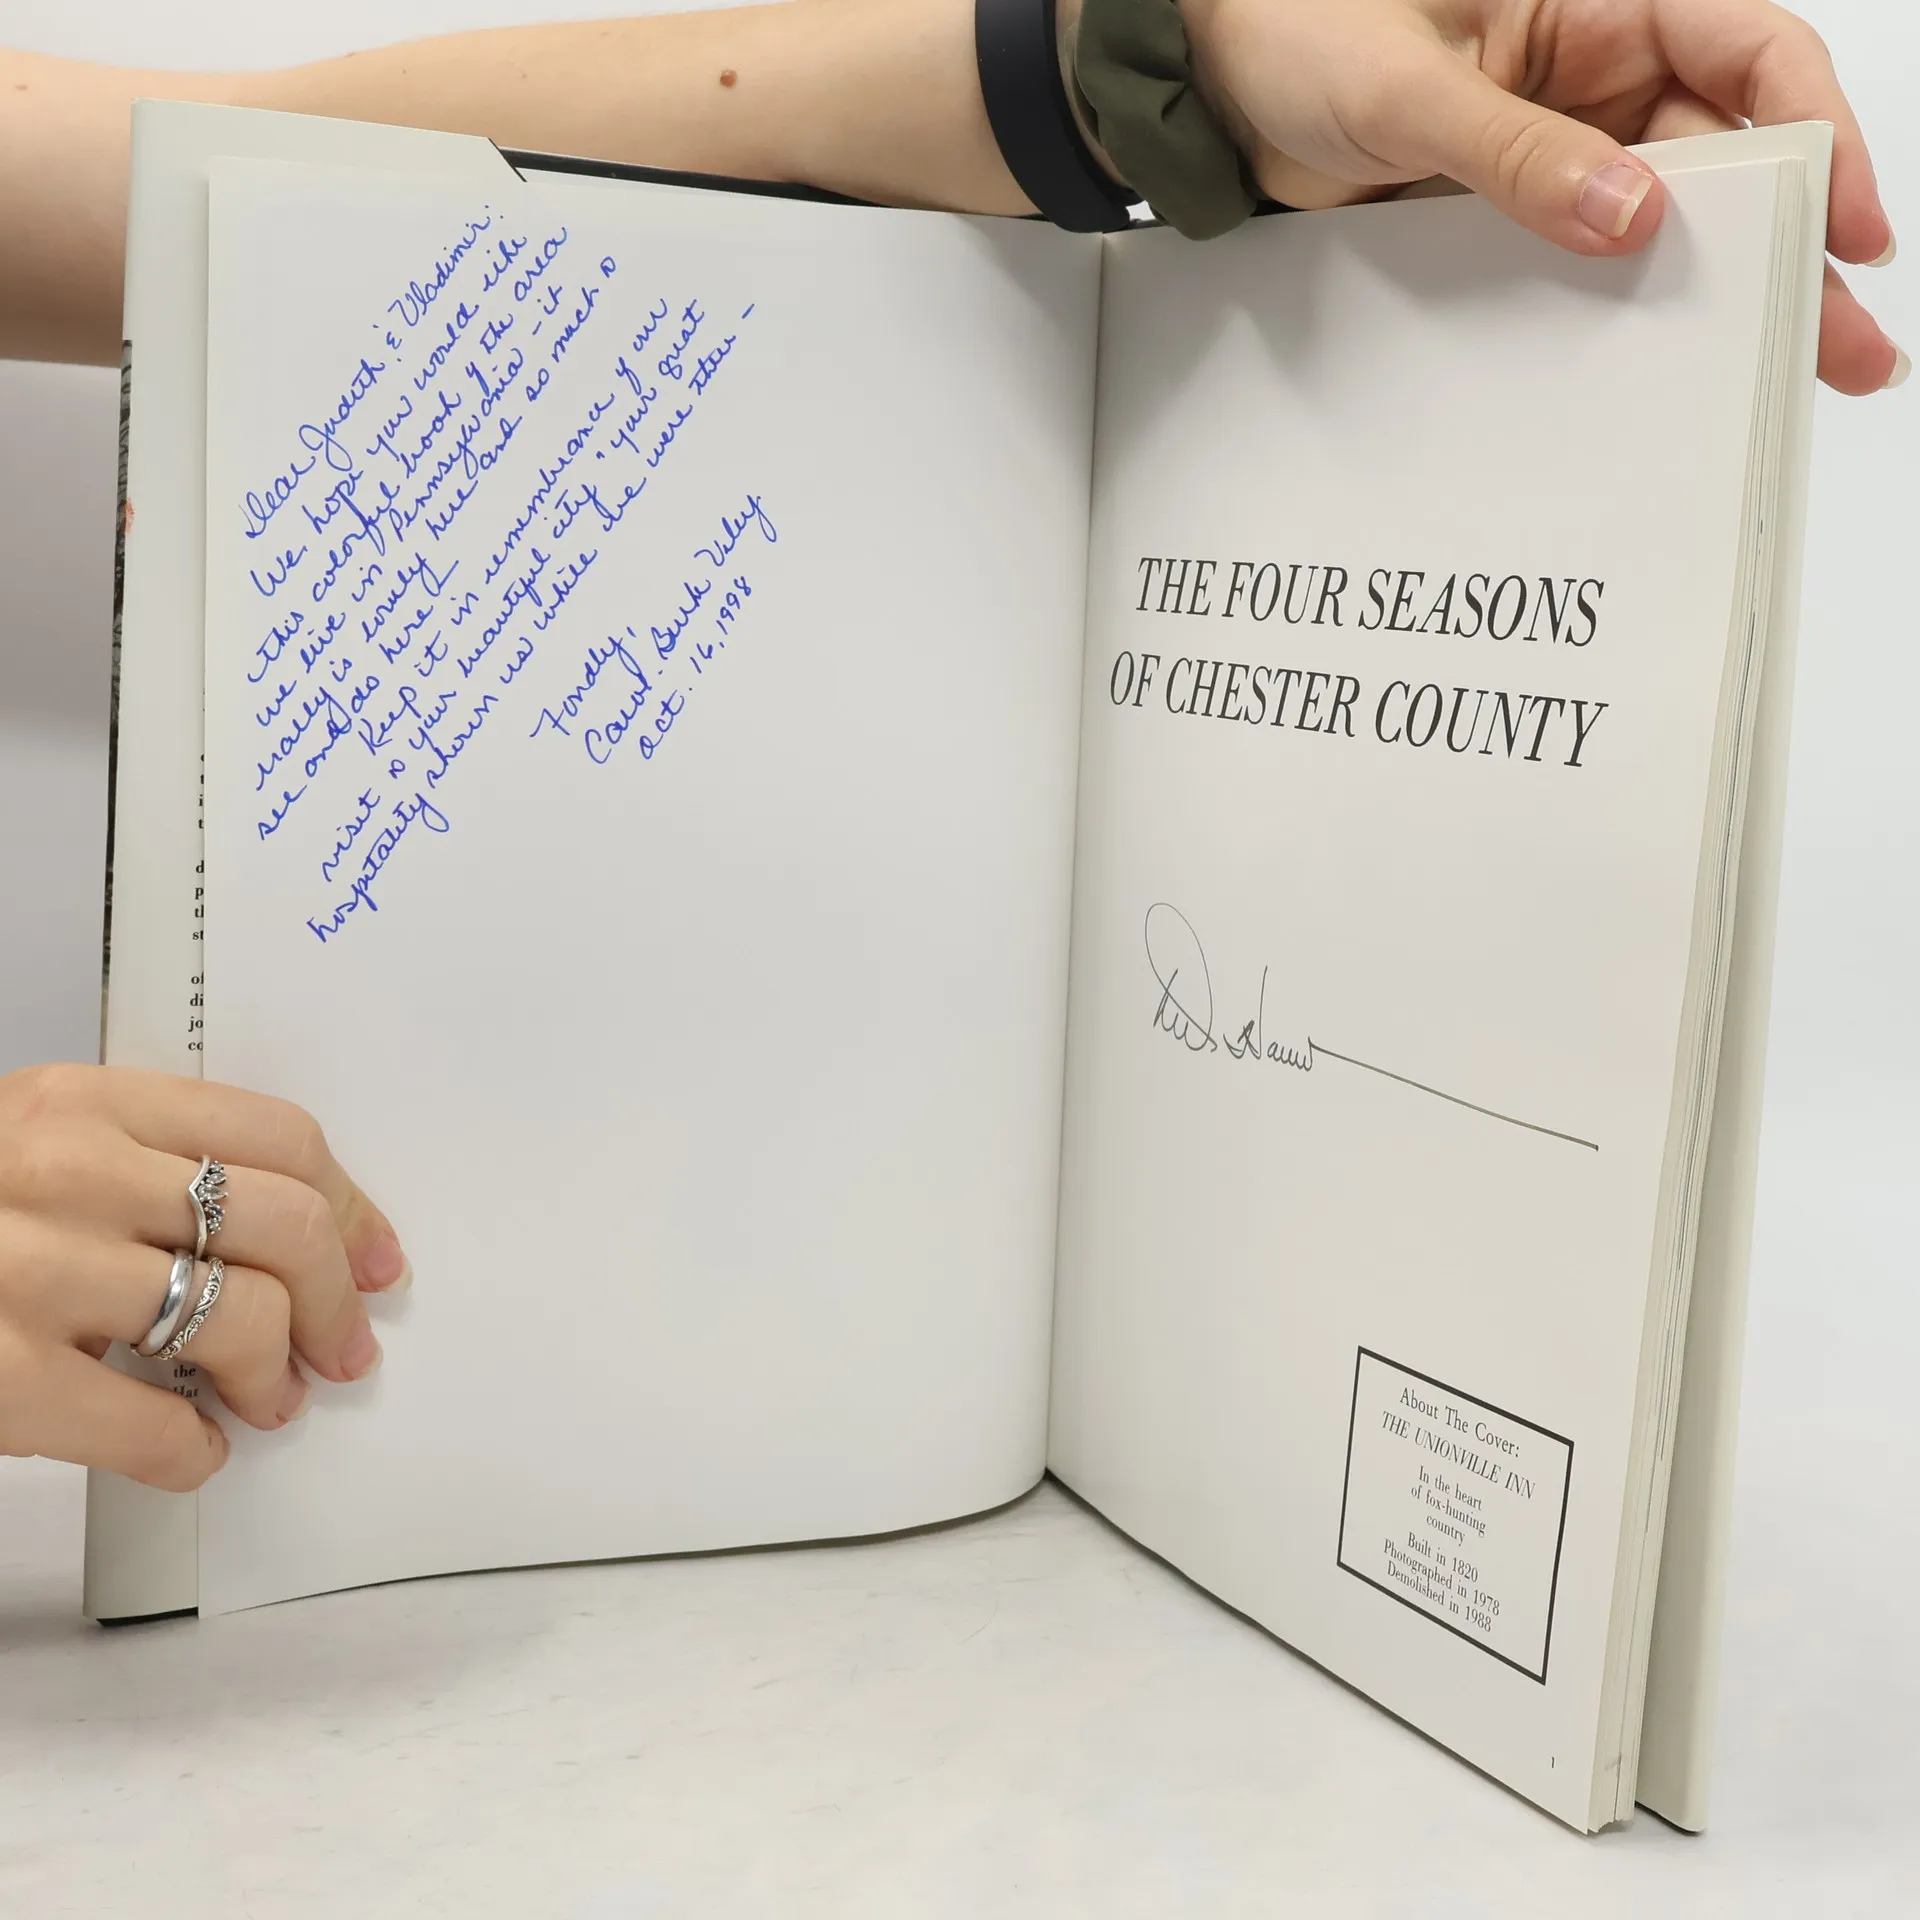 Dear Judith & Vladimir:
We hope you would like
this colorful book of the area
we live in Pennsylvania - it
really is lovely here and so much to
see and do here!
Keep it in remembrance of our
visit to your beautiful city, your great
hospitality shown us while we were there -
Fondly,
Carol, Burk
Oct. 16, 1998
THE FOUR SEASONS
OF CHESTER COUNTY
About The Cover:
THE UNIONVILLE INN
In the heart
of fox-hunting
country
Built in 1820
Photographed in 1978
Demolished in 1988
1
d
p
th
st
of
di
jo
co
the
Har